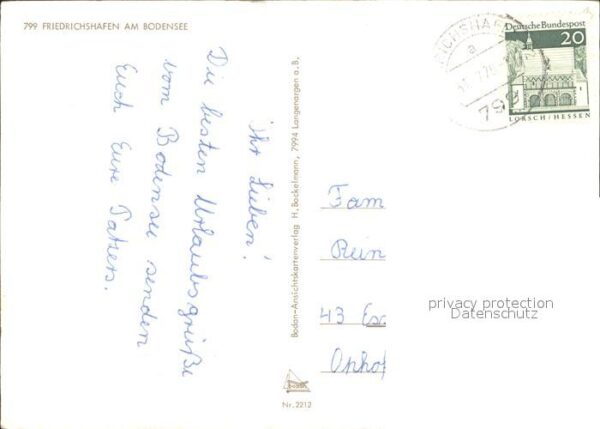 799 FRIEDRICHSHAFEN AM BODENSEE
Ihr Lieben!
Die besten Urlaubsgrüße
vom Bodensee senden
Euch Eure Paters.
Bodan-Ansichtskartenverlag H. Bockelmann, 7994 Langenargen a. B.
Nr. 2212
Deutsche Bundespost
20
LORSCH/HESSEN
799
Fam
Rein
43 Ess
Ophof
privacy protection
Datenschutz